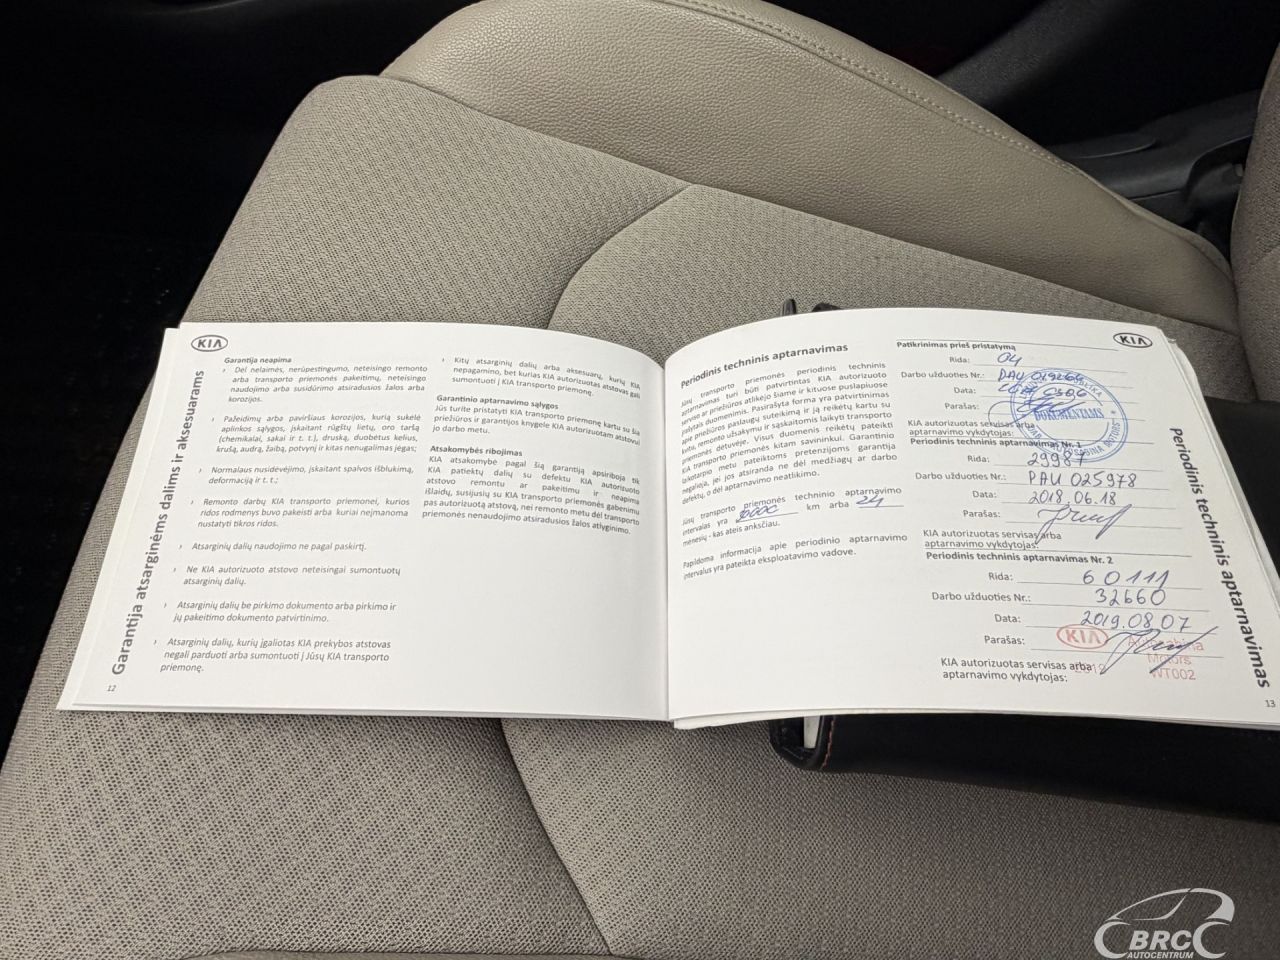 KIA
Garantija atsarginėms dalims ir aksesuarams
Garantija neapima
› Dėl nelaimės, nerūpestingumo, neteisingo remonto
arba transporto priemonės pakeitimų, neteisingo
naudojimo arba susidūrimo atsiradusios žalos arba
korozijos.
› Pažeidimų arba paviršiaus korozijos, kurią sukėlė
aplinkos sąlygos, įskaitant rūgštų lietų, oro taršą
(chemikalai, sakai ir t. t.), druską, duobėtus kelius,
krušą, audrą, žaibą, potvynį ir kitas nenugalimas jėgas;
› Normalaus nusidėvėjimo, įskaitant spalvos išblukimą,
deformaciją ir t. t.;
› Remonto darbų KIA transporto priemonei, kurios
ridos rodmenys buvo pakeisti arba kuriai neįmanoma
nustatyti tikros ridos.
› Atsarginių dalių naudojimo ne pagal paskirtį.
› Ne KIA autorizuoto atstovo neteisingai sumontuotų
atsarginių dalių.
› Atsarginių dalių be pirkimo dokumento arba pirkimo ir
jų pakeitimo dokumento patvirtinimo.
› Atsarginių dalių, kurių įgaliotas KIA prekybos atstovas
negali parduoti arba sumontuoti į Jūsų KIA transporto
priemonę.
12
› Kitų atsarginių dalių arba aksesuarų, kurių KIA
nepagamino, bet kurias KIA autorizuotas atstovas gali
sumontuoti į KIA transporto priemonę.
Garantinio aptarnavimo sąlygos
Jūs turite pristatyti KIA transporto priemonę kartu su šia
priežiūros ir garantijos knygele KIA autorizuotam atstovui
jo darbo metu.
Atsakomybės ribojimas
KIA atsakomybė pagal šią garantiją apsiriboja tik
KIA patiektų dalių su defektu KIA autorizuoto
atstovo remontu ar pakeitimu ir neapima
išlaidų, susijusių su KIA transporto priemonės gabenimu
pas autorizuotą atstovą, nei remonto metu dėl transporto
priemonės nenaudojimo atsiradusios žalos atlyginimo.
Periodinis techninis aptarnavimas
Jūsų transporto priemonės periodinis techninis
aptarnavimas turi būti patvirtintas KIA autorizuoto
serviso ar priežiūros atlikėjo šiame ir kituose puslapiuose
įrašytais duomenimis. Pasirašyta forma yra patvirtinimas
apie priežiūros paslaugų suteikimą ir ją reikėtų kartu su
kvitu, remonto užsakymu ir sąskaitomis laikyti transporto
priemonės dėtuvėje. Visus duomenis reikėtų pateikti
KIA transporto priemonės kitam savininkui. Garantinio
laikotarpio metu pateiktoms pretenzijoms garantija
negalioja, jei jos atsiranda ne dėl medžiagų ar darbo
defektų, o dėl aptarnavimo neatlikimo.
Jūsų transporto priemonės techninio aptarnavimo
intervalas yra 30000 km arba 24
mėnesių - kas ateis anksčiau.
Papildoma informacija apie periodinio aptarnavimo
intervalus yra pateikta eksploatavimo vadove.
KIA
Patikrinimas prieš pristatymą
Rida: 04
Darbo užduoties Nr.: PAU 019266
Data:
Parašas:
DOKUMENTAMS
KIA autorizuotas servisas arba
aptarnavimo vykdytojas:
Periodinis techninis aptarnavimas Nr. 1
Rida: 29987
Darbo užduoties Nr.: PAU 025978
Data: 2018.06.18
Parašas:
KIA autorizuotas servisas arba
aptarnavimo vykdytojas:
Periodinis techninis aptarnavimas Nr. 2
Rida: 60111
Darbo užduoties Nr.: 32660
Data: 2019.08.07
Parašas:
KIA
Motors
WT002
KIA autorizuotas servisas arba
aptarnavimo vykdytojas:
Periodinis techninis aptarnavimas
13
BRC
AUTOCENTRUM